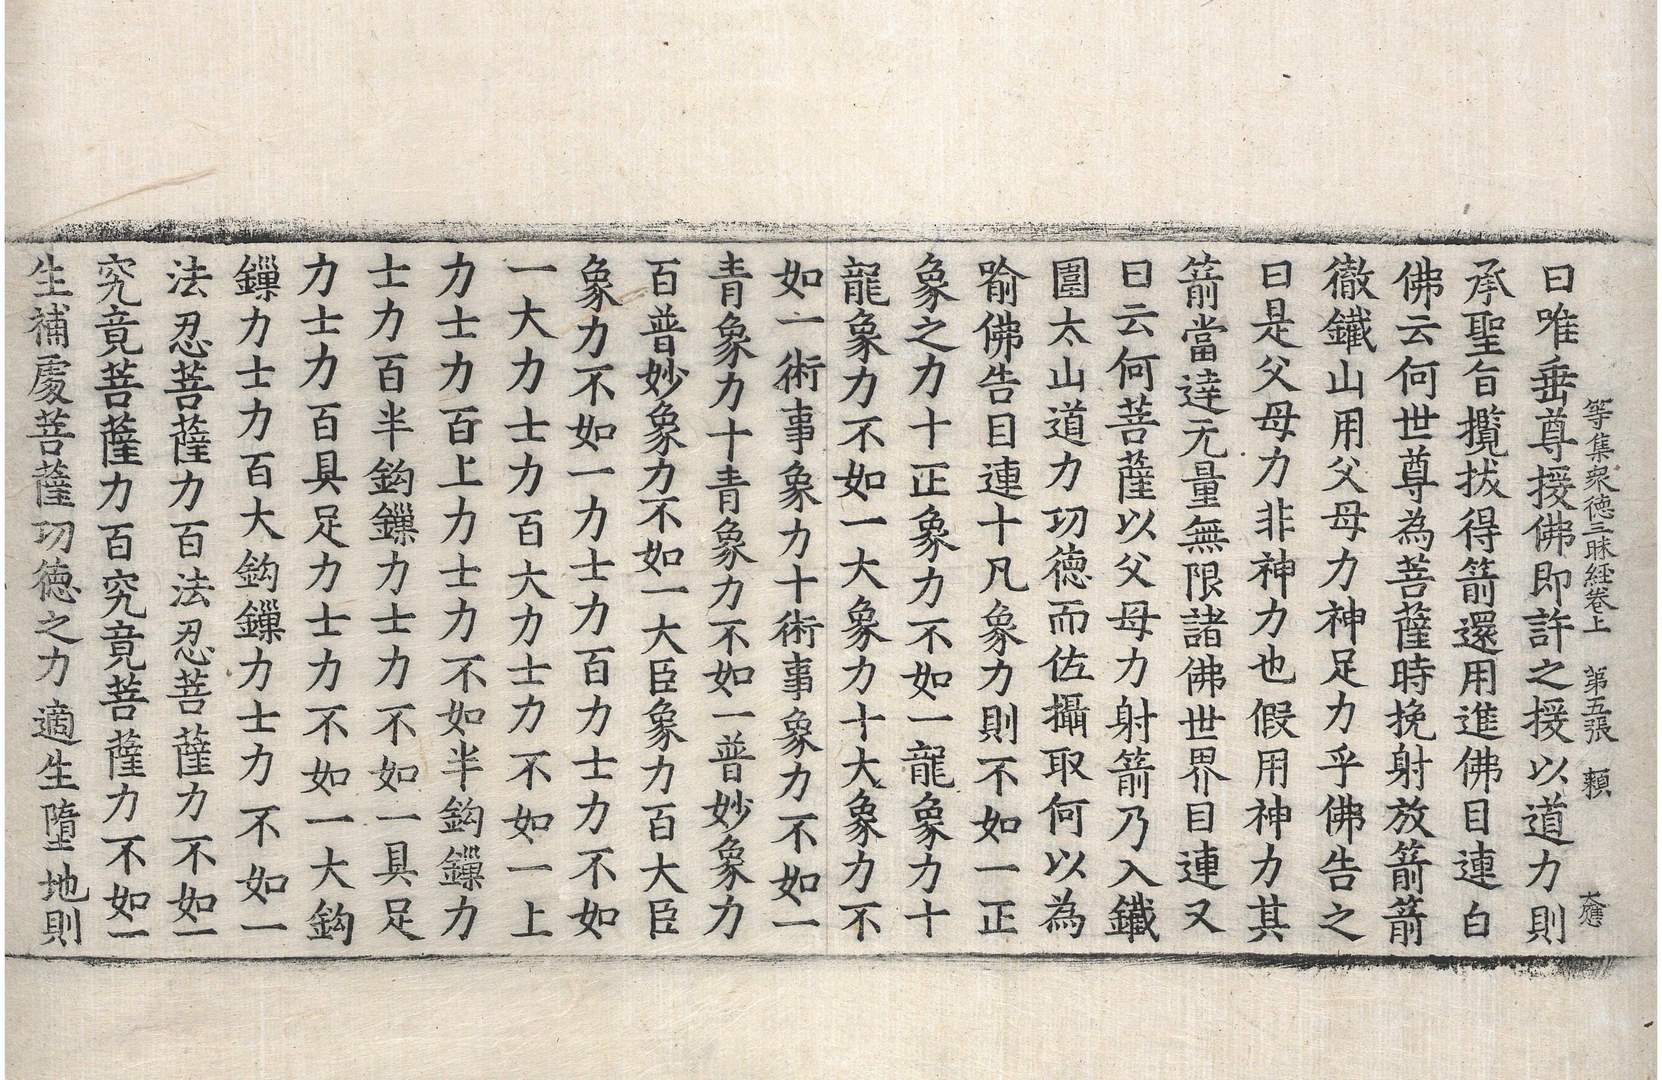 等集衆德三昧經卷上 第五張 賴 大應
曰唯垂尊授佛即許之授以道力則
承聖旨攬拔得箭還用進佛目連白
佛云何世尊為菩薩時挽射放箭箭
徹鐵山用父母力神足力乎佛告之
曰是父母力非神力也假用神力其
箭當達无量無限諸佛世界目連又
曰云何菩薩以父母力射箭乃入鐵
圍太山道力功德而佐攝取何以為
喻佛告目連十凡象力則不如一正
象之力十正象力不如一龍象力十
龍象力不如一大象力十大象力不
如一術事象力十術事象力不如一
青象力十青象力不如一普妙象力
百普妙象力不如一大臣象力百大臣
象力不如一力士力百力士力不如
一大力士力百大力士力不如一上
力士力百上力士力不如半鈎鏁力
士力百半鈎鏁力士力不如一具足
力士力百具足力士力不如一大鈎
鏁力士力百大鈎鏁力士力不如一
法忍菩薩力百法忍菩薩力不如一
究竟菩薩力百究竟菩薩力不如一
生補處菩薩功德之力適生墮地則